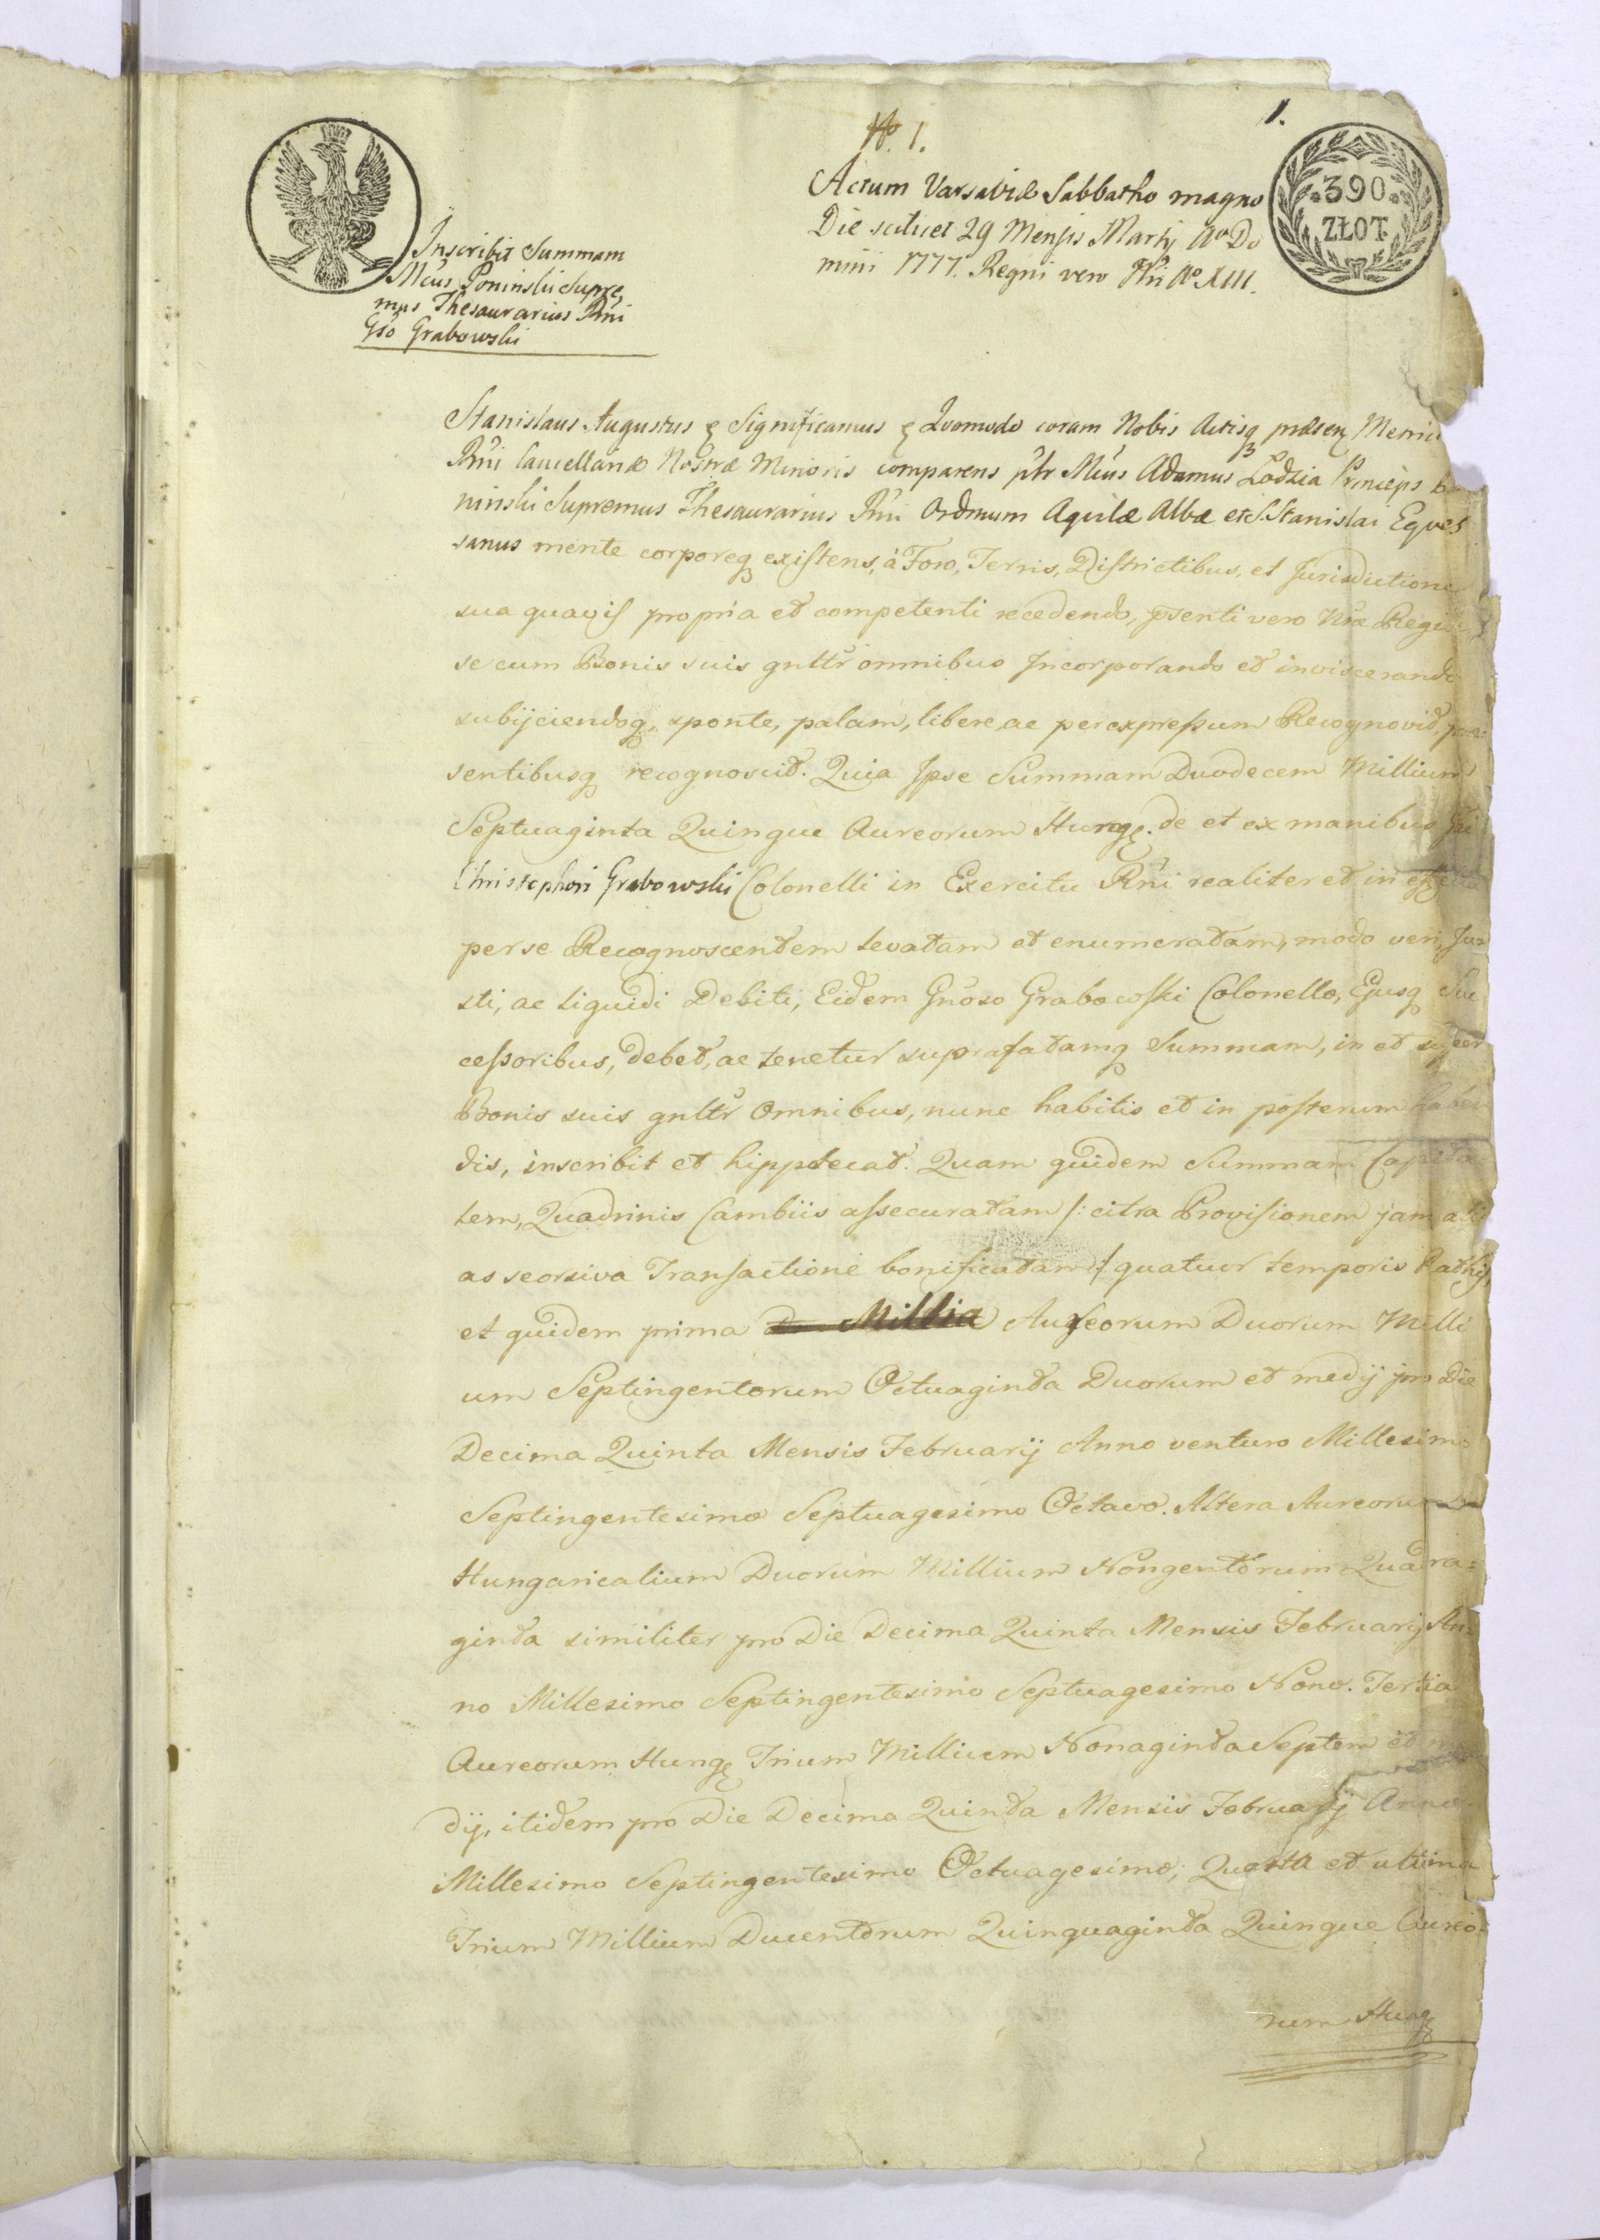 1.
No. 1.
390
ZŁOT.
Actum Varsaviæ Sabbatho magno
Die scilicet 29 Mensis Martij Ao Do
mini 1777. Regni vero Nri Ao XIII.
Inscribit Summam
Mcus Poninski Supre
mus Thesaurarius Rni
Gso Grabowski
Stanislaus Augustus ę Significamus ę Quomodo coram Nobis Actisq præsen Metric
Rni Cancellariæ Nostræ Minoris comparens pltr Mcus Adamus Lodzia Princeps Po
ninski Supremus Thesaurarius Rni Ordinum Aquilæ Albæ et S. Stanislai Eques
sanus mente corporeq existens, à Foro, Terris, Districtibus, et Jurisdictione
sua quavis propria et competenti recedendo, psenti vero Nræ Regiæ
se cum Bonis suis gnltr omnibus Incorporando et inviscerando
subijciendoq, sponte, palam, libere, ac per expressum Recognovit, præ
sentibusq recognoscit. Quia Ipse Summam Duodecem Millium
Septuaginta Quinque Aureorum Hungę. de et ex manibus
Christophori Grabowski Colonelli in Exercitu Rni realiter et in effectu
per se Recognoscentem levatam et enumeratam, modo veri, Ju
sti, ac liquidi Debiti, Eidem Gnoso Grabowski Colonello, Ejusq Suc
cessoribus, debet, ac tenetur suprafatamq Summam, in et super
Bonis suis gnltr Omnibus, nunc habitis et in posterum haben
dis, inscribit et hippotecat. Quam quidem Summam Capita
lem, Quadrinis Cambiis assecuratam /: citra Provisionem jam ali
as seorsiva Transactione bonificatam :/ quatuor temporis Rathis,
et quidem prima Millia Aureorum Duorum Milli
um Septingentorum Octuaginta Duorum et medij pro Die
Decima Quinta Mensis Februarij Anno venturo Millesimo
Septingentesimo Septuagesimo Octavo. Altera Aureorum
Hungaricalium Duorum Millium Nongentorum Quadra=
ginta similiter pro Die Decima Quinta Mensis Februarij An=
no Millesimo Septingentesimo Septuagesimo Nono. Tertia
Aureorum Hungę Trium Millium Nonaginta Septem et me
dij, itidem pro Die Decima Quinta Mensis Februarij Anno
Millesimo Septingentesimo Octuagesimo; Quarta et ultima
Trium Millium Ducentorum Quinquaginta Quinque Aureo=
rum Hungę